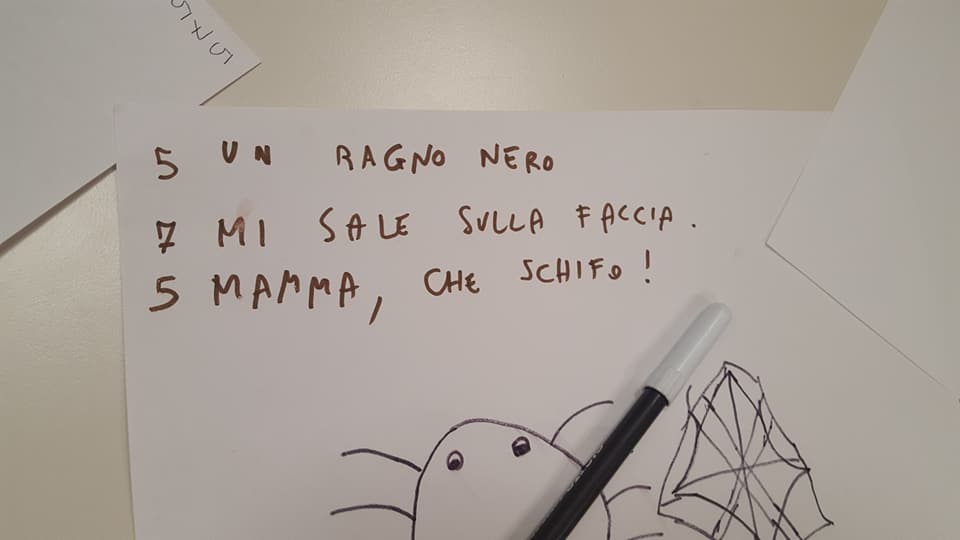 5 UN RAGNO NERO
7 MI SALE SULLA FACCIA.
5 MAMMA, CHE SCHIFO!